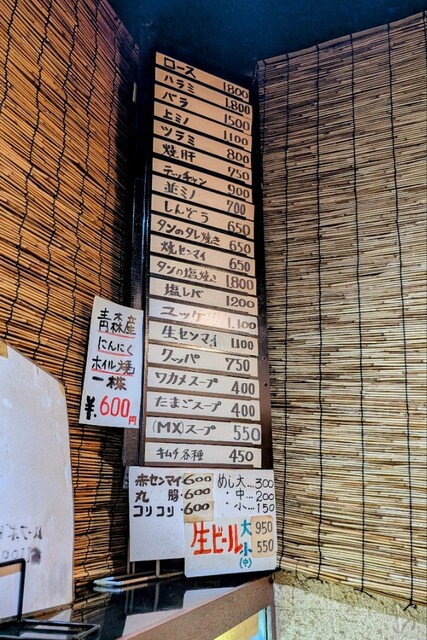 ロース 1800
ハラミ 1,800
バラ 1500
上ミノ 1100
ツラミ 800
焼肝 750
テッチャン 900
並ミノ 700
しんぞう 650
タンのタレ焼き 650
焼センマイ 650
タンの塩焼き 1,800
塩レバ 1200
ユッケ 1,100
生センマイ 1,100
クッパ 750
ワカメスープ 400
たまごスープ 400
(MX)スープ 550
キムチ各種 450
青森産
にんにく
ホイル焼
一株
¥.600円
赤センマイ・600
丸腸・600
コリコリ・600
めし大…300
・中…200
・小…150
生ビール 大 950
小(中) 550